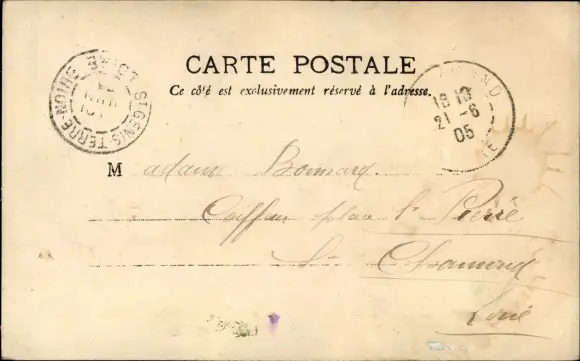 CARTE POSTALE
Ce côté est exclusivement réservé à l'adresse.
ST GENIS TERRE-NOIRE LOIRE
18 10
21 -6
05
Madame Bonnard
Coiffeur place St Pierre
St Chamond
Loire